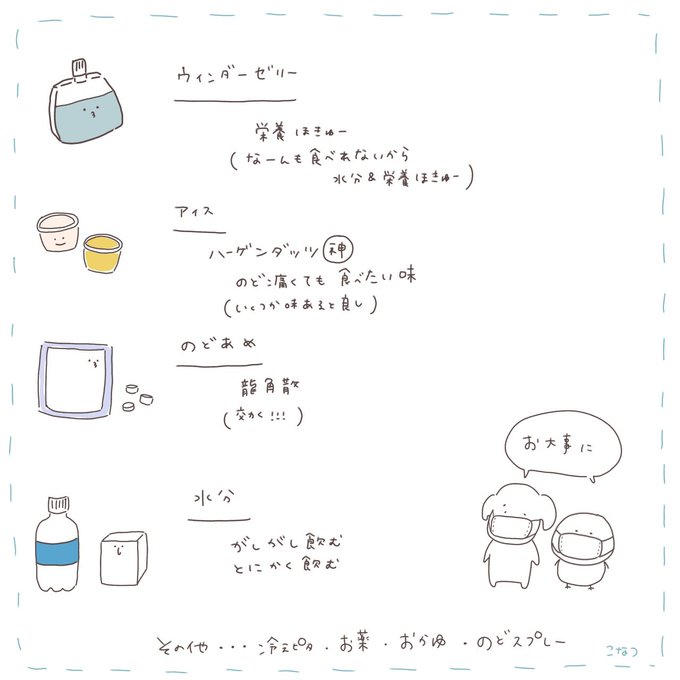 ウィンダーゼリー
栄養ほきゅー
(なーんも食べれないから
水分&栄養ほきゅー)
アイス
ハーゲンダッツ 神
のどこ痛くても食べたい味
(いくつか味あると良し)
のどあめ
龍角散
(効く!!!)
お大事に
水分
がしがし飲む
とにかく飲む
その他・・・冷えピタ・お薬・おかゆ・のどスプレー
こなつ